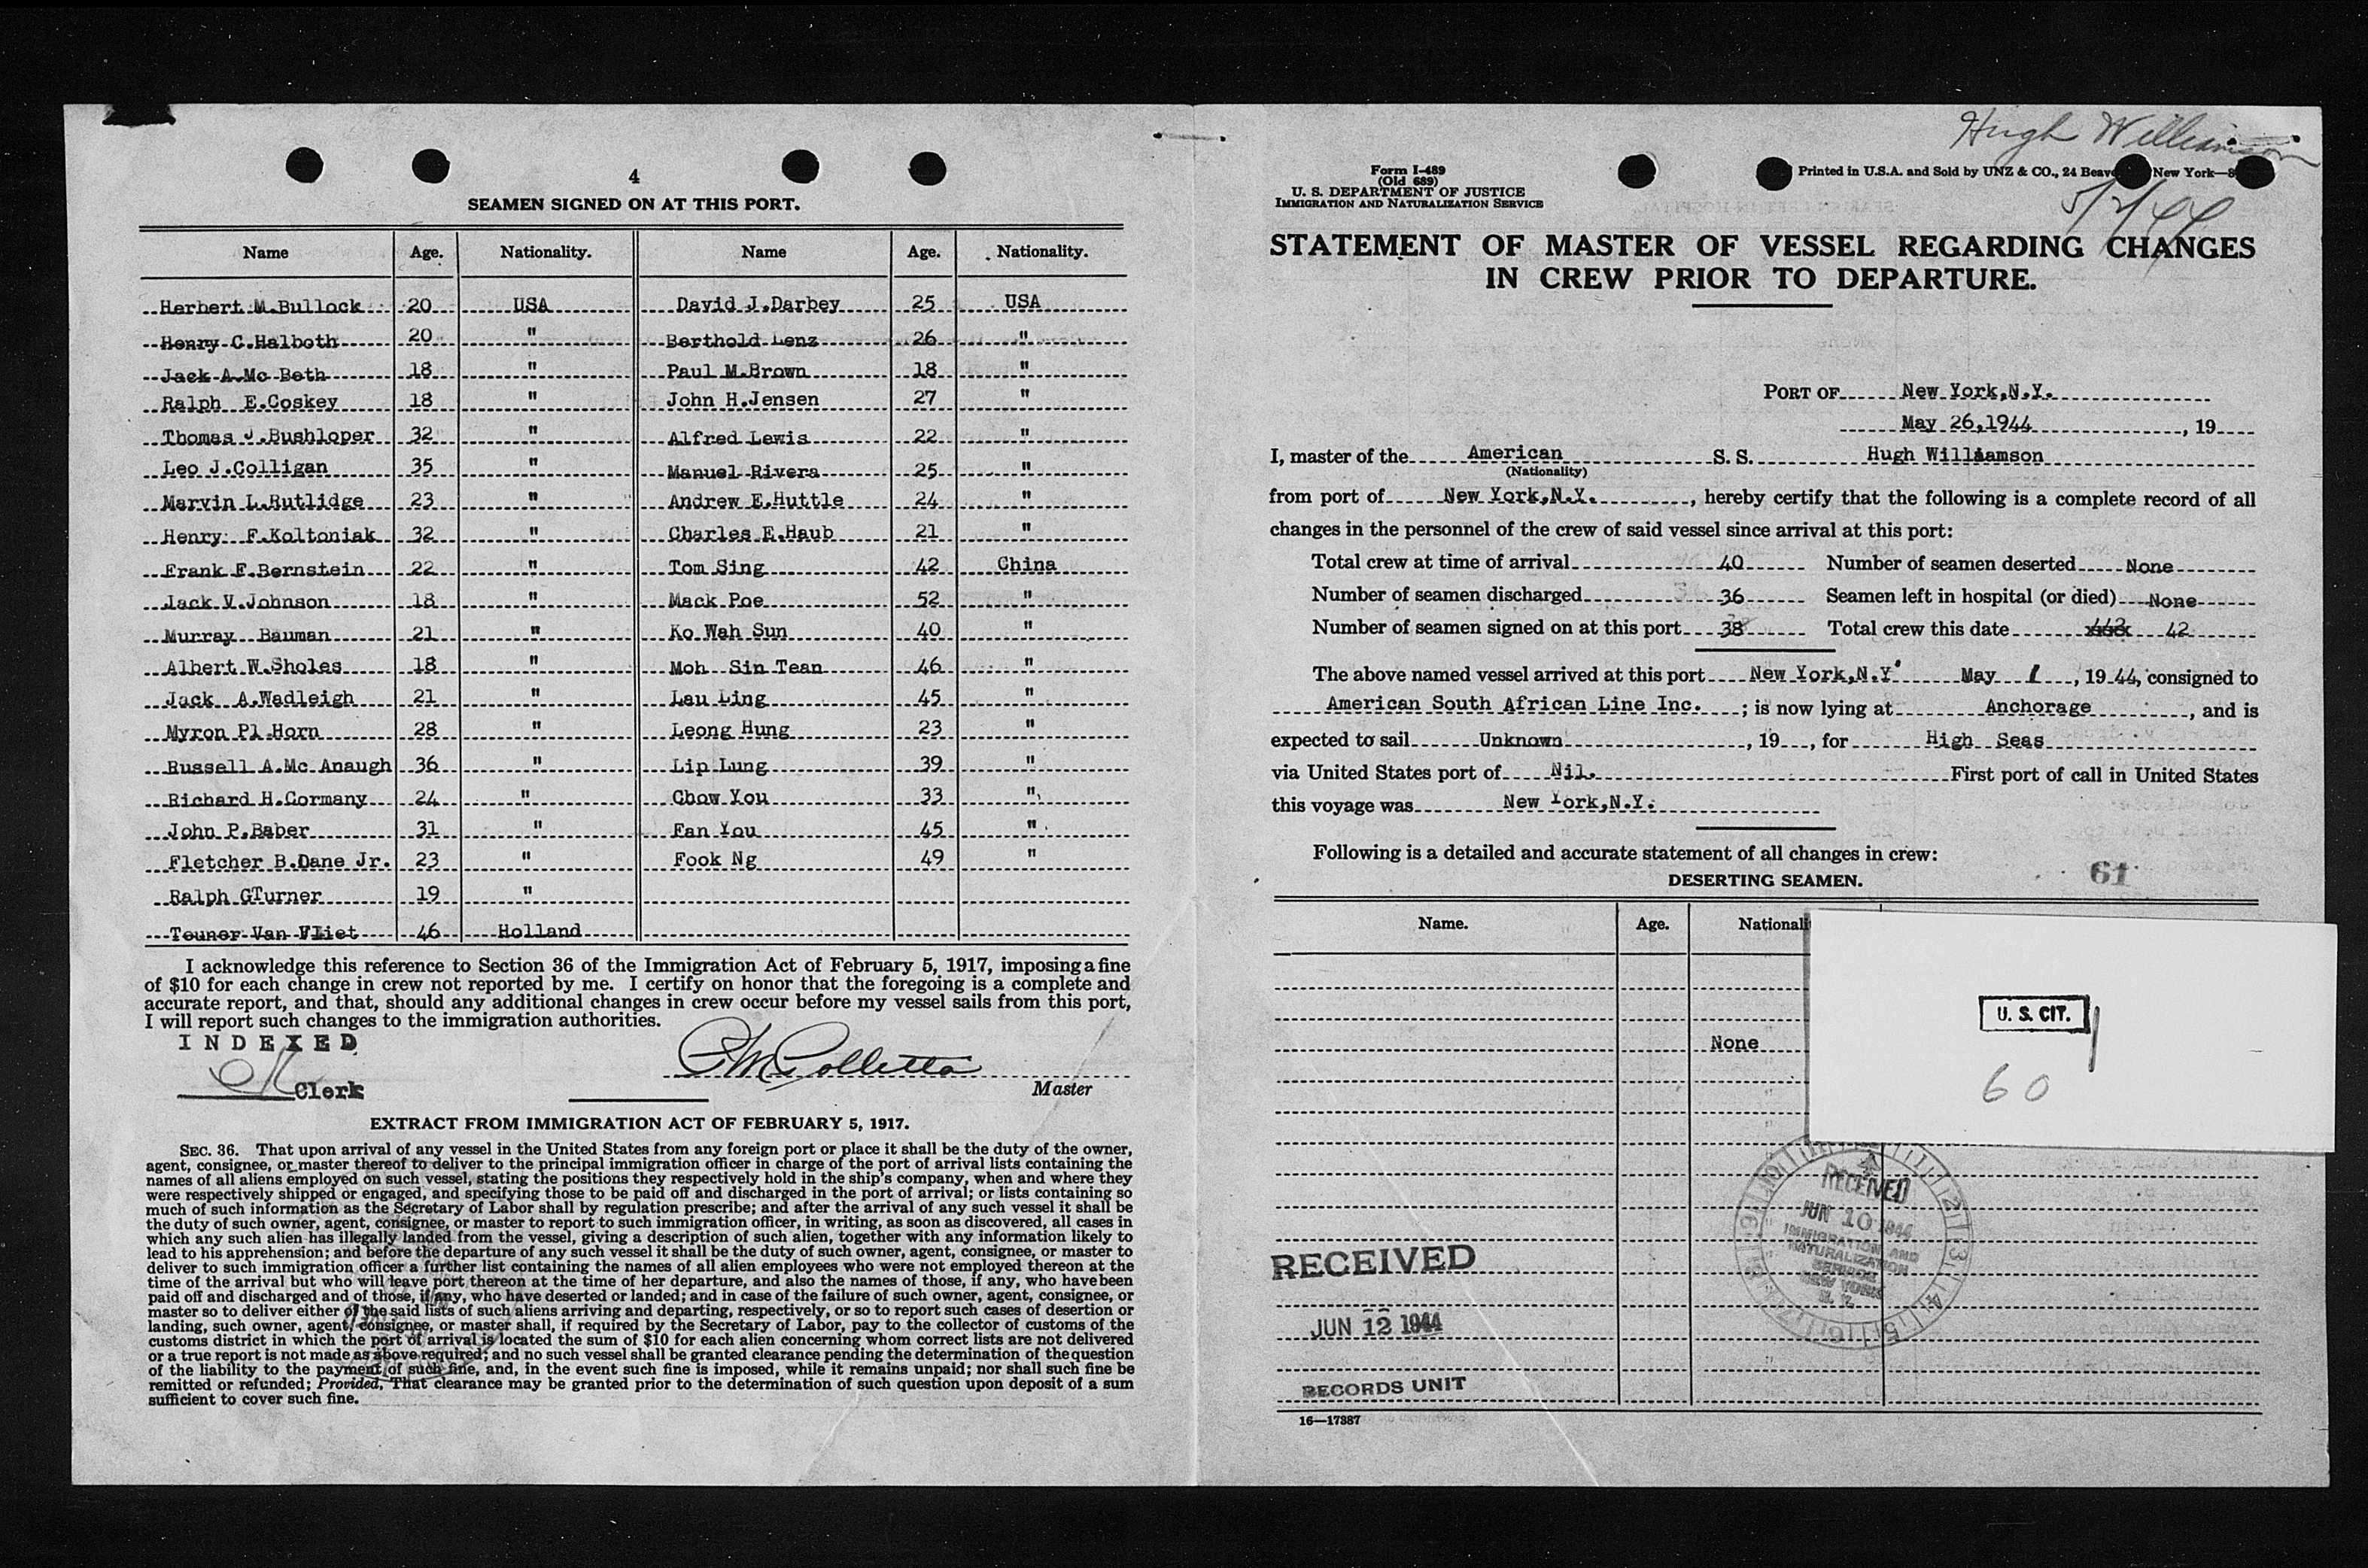 4
SEAMEN SIGNED ON AT THIS PORT.
Name Age. Nationality. Name Age. Nationality.
Herbert M.Bullock 20 USA David J.Darbey 25 USA
Henry C.Halboth 20 " Berthold Lenz 26 "
Jack A.Mc Beth 18 " Paul M.Brown 18 "
Ralph E.Coskey 18 " John H.Jensen 27 "
Thomas J.Bushloper 32 " Alfred Lewis 22 "
Leo J.Colligan 35 " Manuel Rivera 25 "
Marvin L.Rutlidge 23 " Andrew E.Huttle 24 "
Henry F.Koltoniak 32 " Charles E.Haub 21 "
Frank F.Bernstein 22 " Tom Sing 42 China
Jack V.Johnson 18 " Mack Poe 52 "
Murray Bauman 21 " Ko Wah Sun 40 "
Albert W.Sholes 18 " Moh Sin Tean 46 "
Jack A.Wadleigh 21 " Lau Ling 45 "
Myron Pl Horn 28 " Leong Hung 23 "
Russell A.Mc Anaugh 36 " Lip Lung 39 "
Richard H.Cormany 24 " Chow You 33 "
John P.Baber 31 " Fan You 45 "
Fletcher B.Dane Jr. 23 " Fook Ng 49 "
Ralph GTurner 19 "
Teuner Van Vliet 46 Holland
I acknowledge this reference to Section 36 of the Immigration Act of February 5, 1917, imposing a fine
of $10 for each change in crew not reported by me. I certify on honor that the foregoing is a complete and
accurate report, and that, should any additional changes in crew occur before my vessel sails from this port,
I will report such changes to the immigration authorities.
INDEXED
Clerk
Master
EXTRACT FROM IMMIGRATION ACT OF FEBRUARY 5, 1917.
SEC. 36. That upon arrival of any vessel in the United States from any foreign port or place it shall be the duty of the owner,
agent, consignee, or master thereof to deliver to the principal immigration officer in charge of the port of arrival lists containing the
names of all aliens employed on such vessel, stating the positions they respectively hold in the ship's company, when and where they
were respectively shipped or engaged, and specifying those to be paid off and discharged in the port of arrival; or lists containing so
much of such information as the Secretary of Labor shall by regulation prescribe; and after the arrival of any such vessel it shall be
the duty of such owner, agent, consignee, or master to report to such immigration officer, in writing, as soon as discovered, all cases in
which any such alien has illegally landed from the vessel, giving a description of such alien, together with any information likely to
lead to his apprehension; and before the departure of any such vessel it shall be the duty of such owner, agent, consignee, or master to
deliver to such immigration officer a further list containing the names of all alien employees who were not employed thereon at the
time of the arrival but who will leave port thereon at the time of her departure, and also the names of those, if any, who have been
paid off and discharged and of those, if any, who have deserted or landed; and in case of the failure of such owner, agent, consignee, or
master so to deliver either of the said lists of such aliens arriving and departing, respectively, or so to report such cases of desertion or
landing, such owner, agent, consignee, or master shall, if required by the Secretary of Labor, pay to the collector of customs of the
customs district in which the port of arrival is located the sum of $10 for each alien concerning whom correct lists are not delivered
or a true report is not made as above required; and no such vessel shall be granted clearance pending the determination of the question
of the liability to the payment of such fine, and, in the event such fine is imposed, while it remains unpaid; nor shall such fine be
remitted or refunded; Provided, That clearance may be granted prior to the determination of such question upon deposit of a sum
sufficient to cover such fine.
Hugh Williamson
5/2/44
Form I-489
(Old 689)
U. S. DEPARTMENT OF JUSTICE
IMMIGRATION AND NATURALIZATION SERVICE
Printed in U.S.A. and Sold by UNZ & CO., 24 Beave New York—8
STATEMENT OF MASTER OF VESSEL REGARDING CHANGES
IN CREW PRIOR TO DEPARTURE.
PORT OF New York,N.Y.
May 26,1944, 19
I, master of the American S. S. Hugh Williamson
(Nationality)
from port of New York,N.Y., hereby certify that the following is a complete record of all
changes in the personnel of the crew of said vessel since arrival at this port:
Total crew at time of arrival 40 Number of seamen deserted None
Number of seamen discharged 36 Seamen left in hospital (or died) None
Number of seamen signed on at this port 38 Total crew this date 42
The above named vessel arrived at this port New York,N.Y. May 1, 1944, consigned to
American South African Line Inc.; is now lying at Anchorage, and is
expected to sail Unknown, 19, for High Seas
via United States port of Nil. First port of call in United States
this voyage was New York,N.Y.
Following is a detailed and accurate statement of all changes in crew:
61
DESERTING SEAMEN.
Name. Age. Nationali
None
U. S. CIT.
60
RECEIVED
JUN 10 1944
IMMIGRATION AND
NATURALIZATION
SERVICE
NEW YORK
N. Y.
RECEIVED
JUN 12 1944
RECORDS UNIT
16—17387